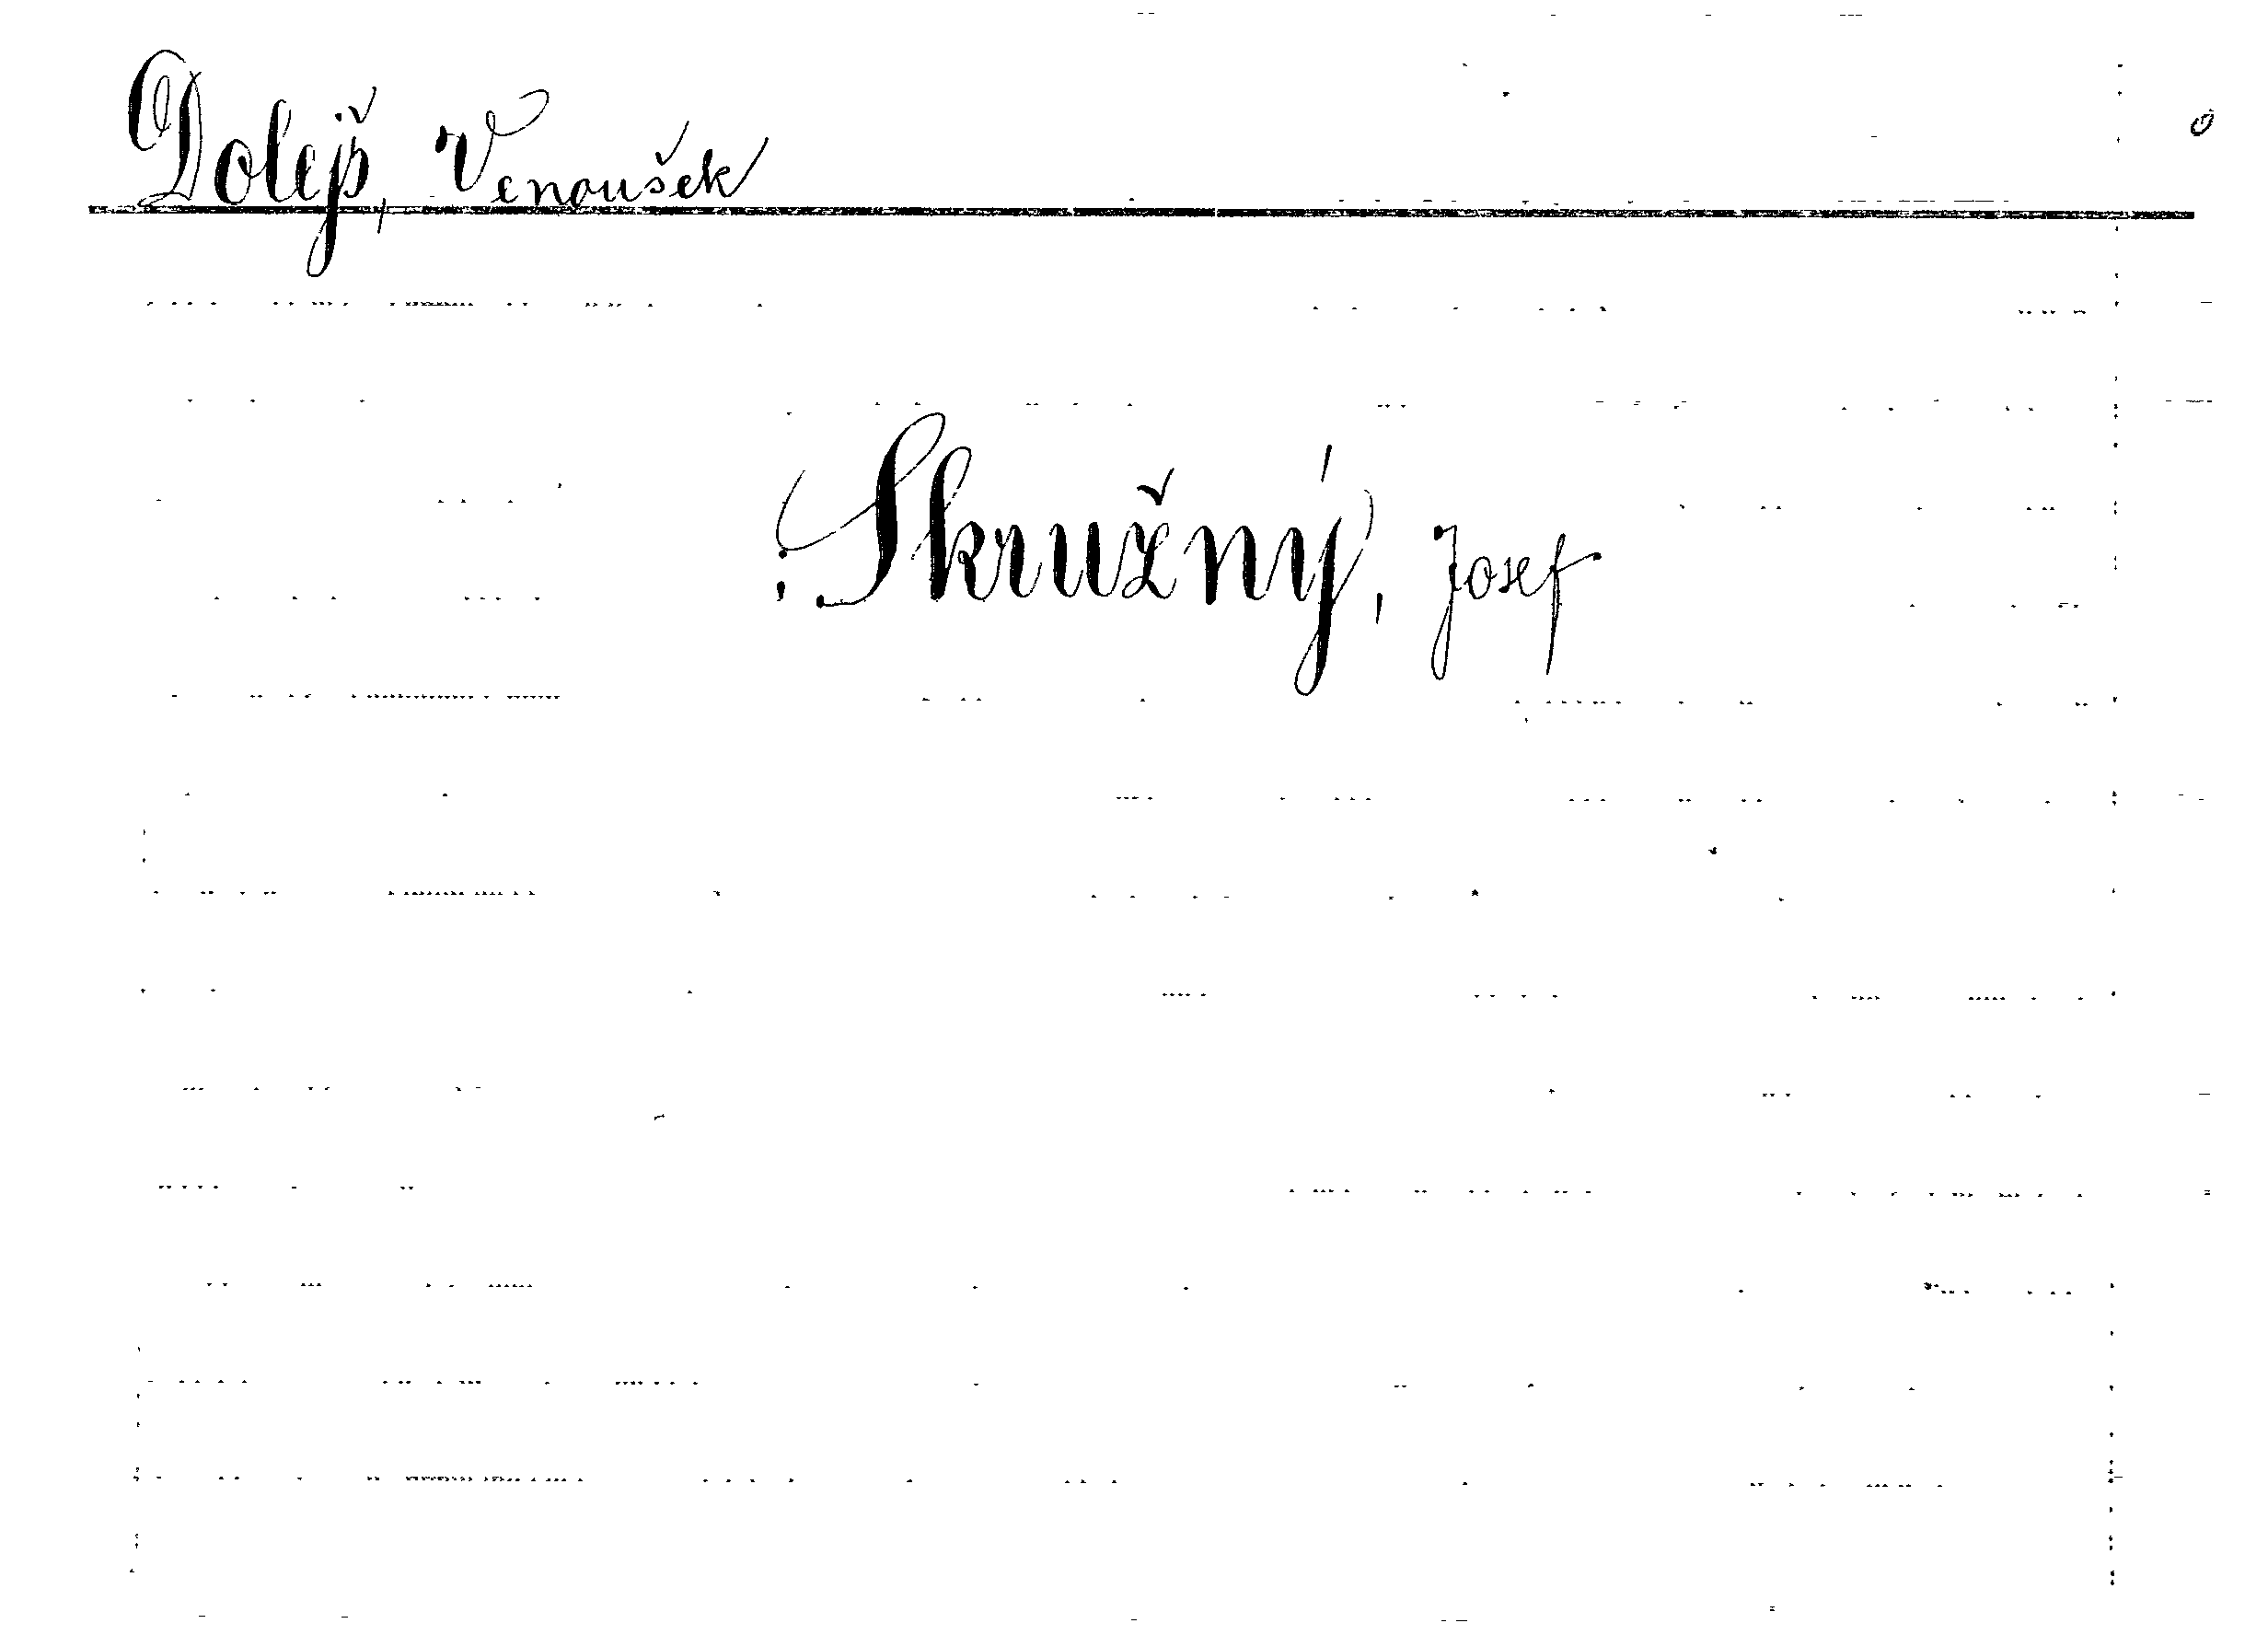 Dolejš, Venoušek
: Skružný, Josef